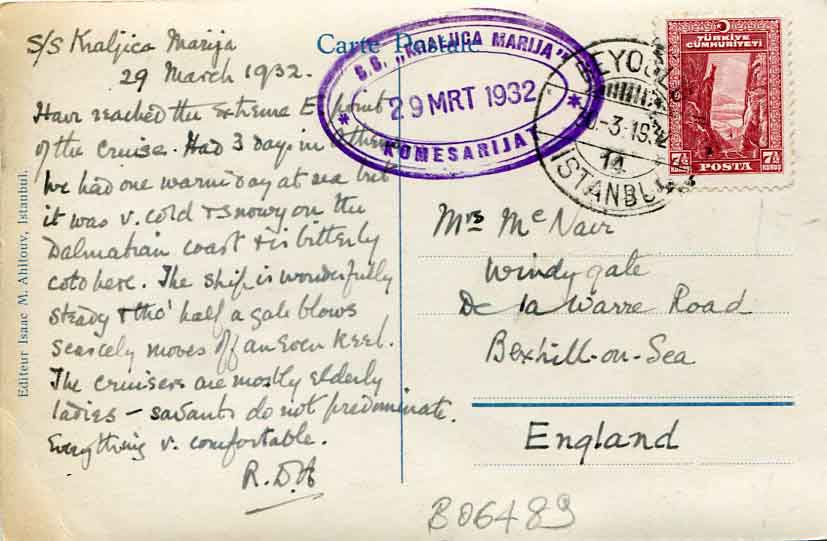 S/S Kraljica Marija
29 March 1932.
Have reached the extreme E. point
of the cruise. Had 3 days in Athens
We had one warm day at sea but
it was v. cold & snowy on the
Dalmatian coast & is bitterly
cold here. The ship is wonderfully
steady & tho' half a gale blows
scarcely moves off an even keel.
The cruisers are mostly elderly
ladies – savants do not predominate.
Everything v. comfortable.
R.D.A
Editeur Isaac M. Ahitouv, Istanbul.
Carte Postale
S.S. „KRALJICA MARIJA"
* 29 MRT 1932 *
KOMESARIJAT
BEYOĞLU
-3-19
14
ISTANBUL
TÜRKİYE
CÜMHURİYETİ
7½ POSTA 7½
KURUŞ KURUŞ
Mrs McNair
Windygate
De la Warre Road
Bexhill-on-Sea
England
B06489